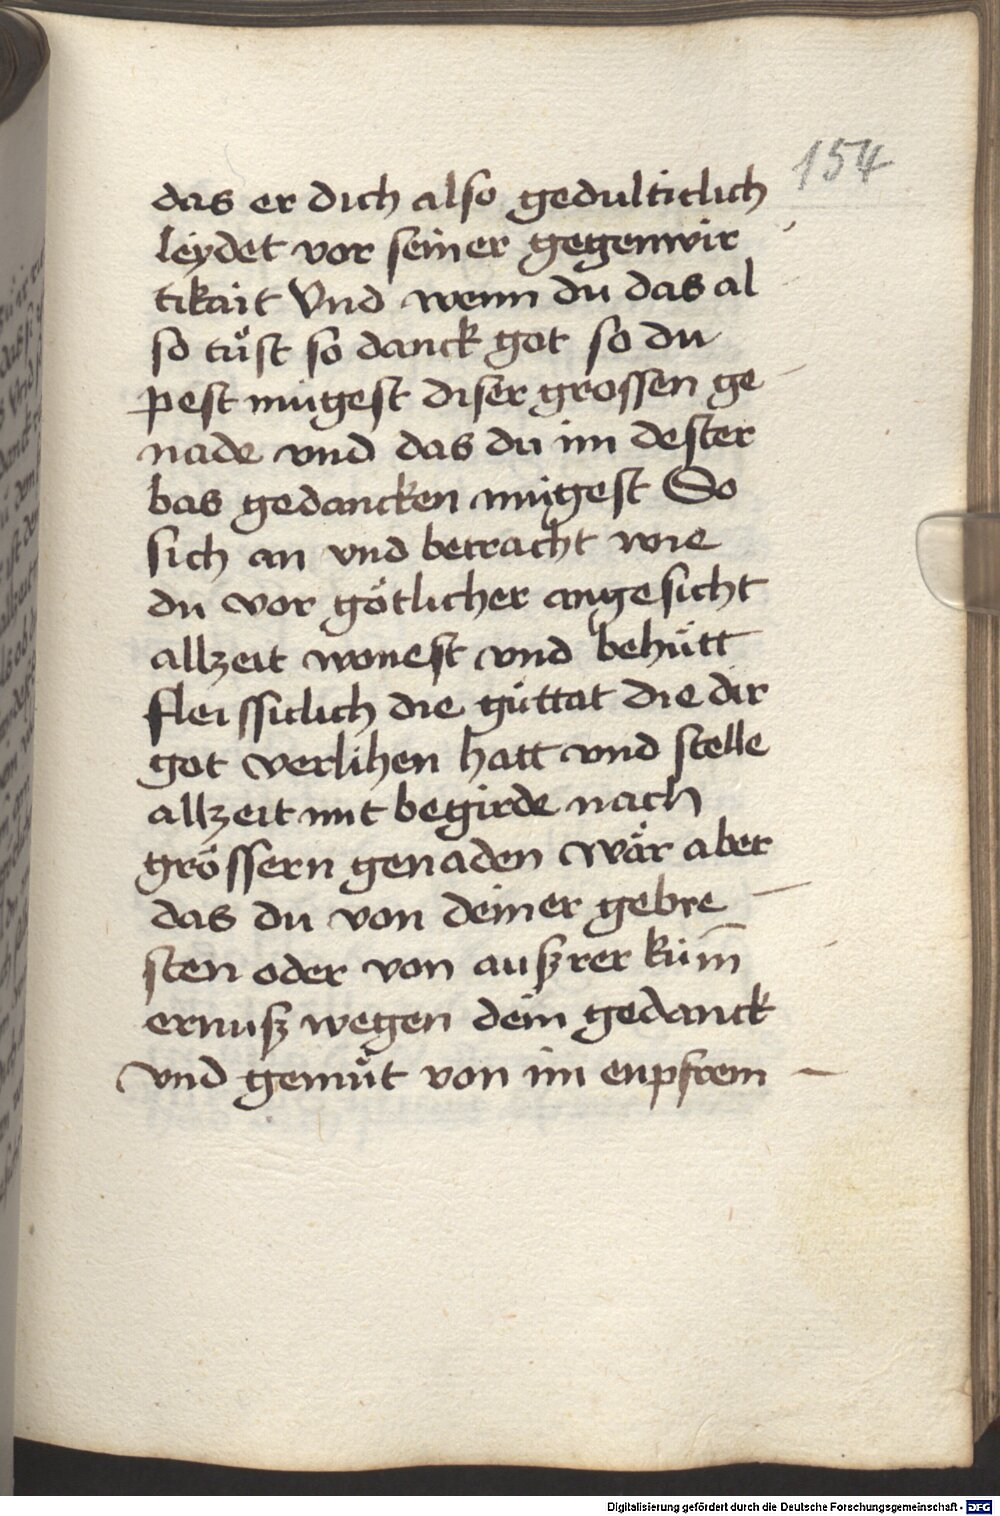 154
das er dich also gedultitlich
leydet vor seiner gegenwir
tikait Vnd wenn du das al
so tuͤst so danck got so du
pest mugest diser grossen ge
nade vnd das du im dester
bas gedancken mugest So
sich an vnd betracht wie
du vor goͤtlicher angesicht
allzeit wonest vnd behuͤtt
fleissitlich die guttat die dir
got verlihen hatt vnd stelle
allzeit mit begirde nach
groͤssern genaden waͤr aber
das du von deiner gebre
sten oder von auszrer kum̄
ernusz wegen dein gedanck
vnd gemuͤt von im enpfrem
Digitalisierung gefördert durch die Deutsche Forschungsgemeinschaft - DFG